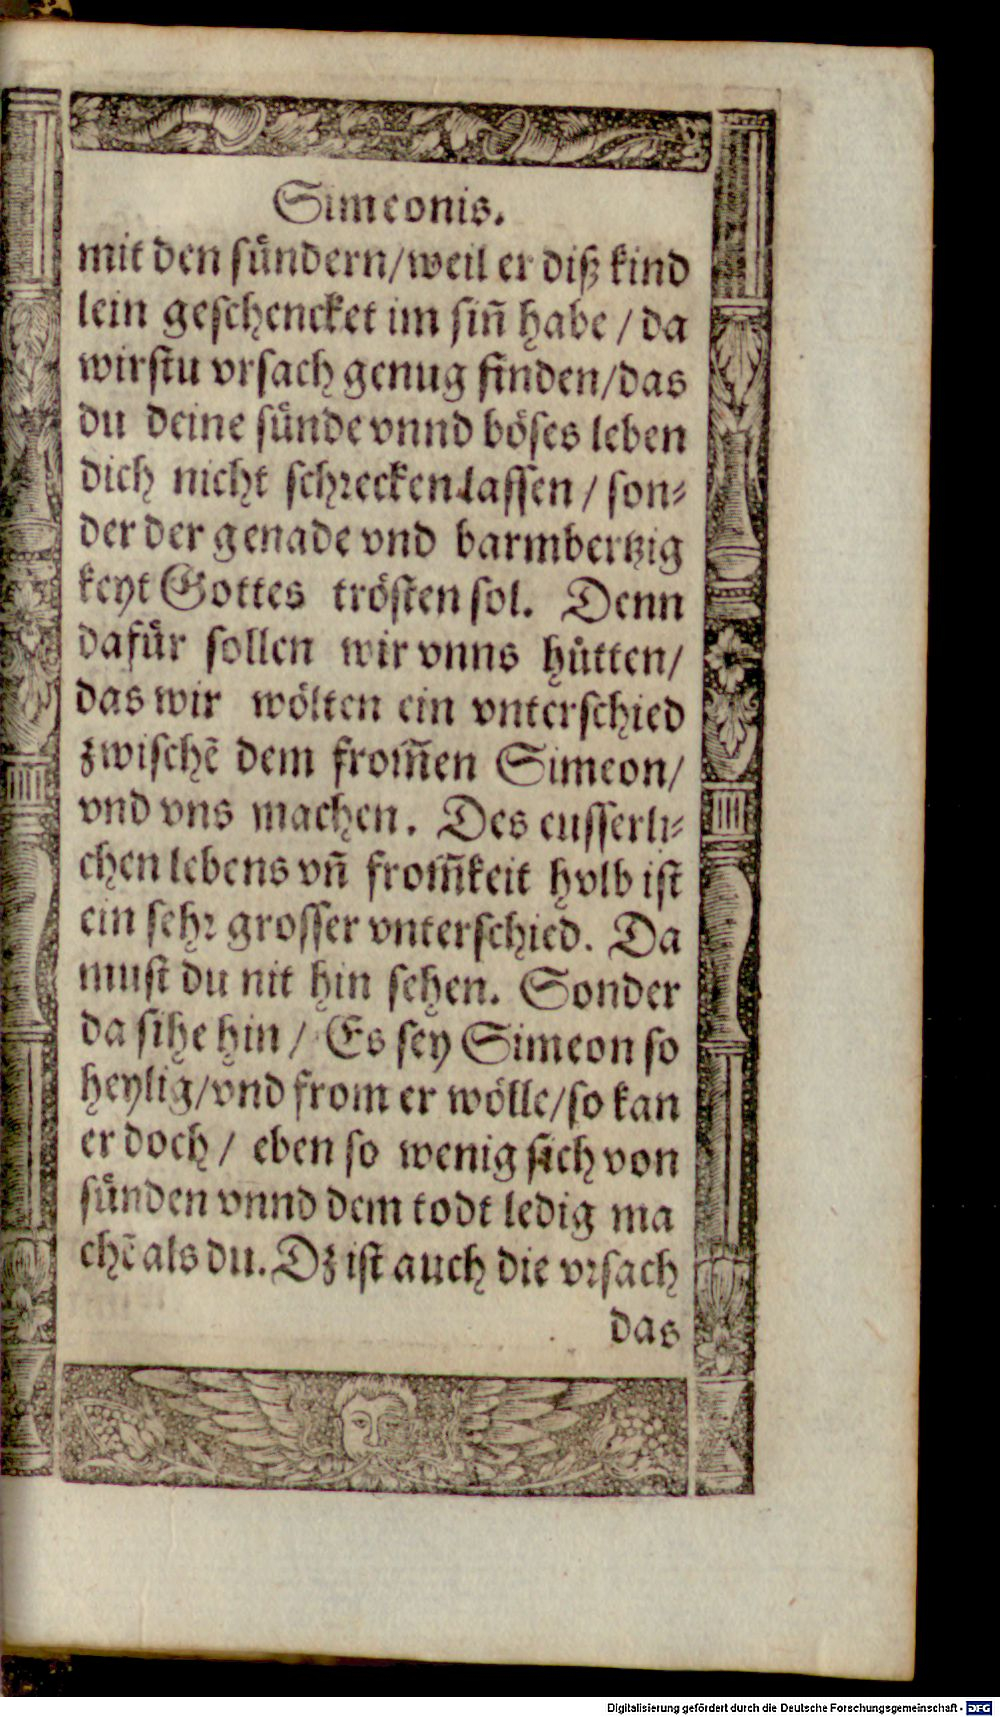 Simeonis.
mit den sündern/weil er diß kind
lein geschencket im siñ habe / da
wirstu vrsach genug finden/das
du deine sünde vnnd böses leben
dich nicht schrecken lassen / son⸗
der der genade vnd barmhertzig
keyt Gottes trösten sol. Denn
dafür sollen wir vnns hütten/
das wir wölten ein vnterschied
zwischẽ dem from̃en Simeon/
vnd vns machen. Des eusserli⸗
chen lebens vñ from̃keit hvlb ist
ein sehr grosser vnterschied. Da
must du nit hin sehen. Sonder
da sihe hin / Es sey Simeon so
heylig/vnd from er wölle/so kan
er doch/ eben so wenig sich von
sünden vnnd dem todt ledig ma
chẽ als du. Dz ist auch die vrsach
das
Digitalisierung gefördert durch die Deutsche Forschungsgemeinschaft - DFG